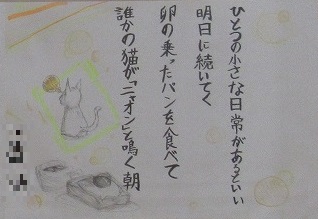 ひとつの小さな日常があるといい
明日に続いてく
卵の乗ったパンを食べて
誰かの猫が「ニャオン」と鳴く朝